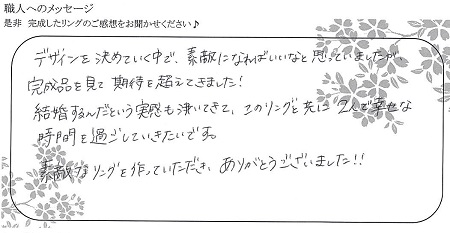 職人へのメッセージ
是非 完成したリングのご感想をお聞かせください♪
デザインを決めていく中で、素敵になればいいなと思っていましたが、
完成品を見て期待を超えてきました!
結婚するんだという実感も沸いてきて、このリングと共に2人で幸せな
時間を過ごしていきたいです。
素敵なリングを作っていただき、ありがとうございました!!